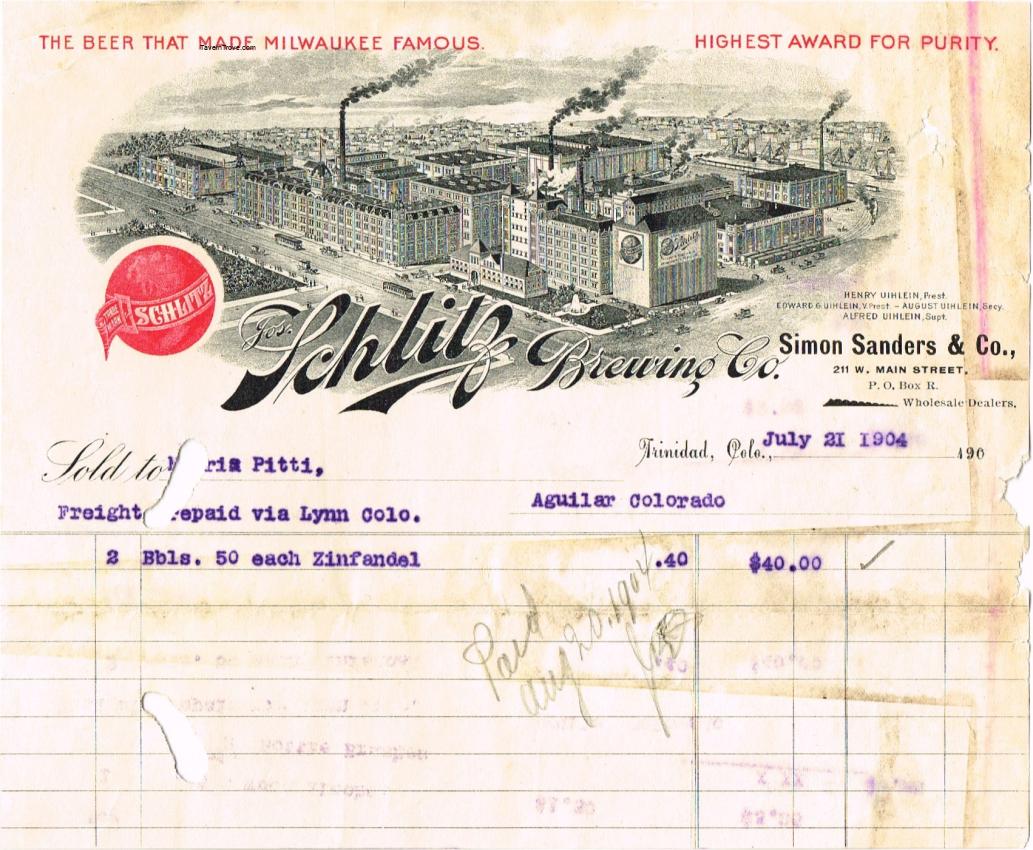 THE BEER THAT MADE MILWAUKEE FAMOUS.
TavernTrove.com
HIGHEST AWARD FOR PURITY.
SCHLITZ
TRADE MARK
Schlitz
HENRY UIHLEIN, Prest.
EDWARD G UIHLEIN, V. Prest. - AUGUST UIHLEIN, Secy.
ALFRED UIHLEIN, Supt.
Jos. Schlitz Brewing Co.
Simon Sanders & Co.,
211 W. MAIN STREET.
P. O. Box R.
Wholesale Dealers.
Trinidad, Colo., July 21 1904 190
Sold to ria Pitti,
Freight repaid via Lynn Colo.
Aguilar Colorado
2 Bbls. 50 each Zinfandel .40 $40.00
Paid
Aug 20. 1904